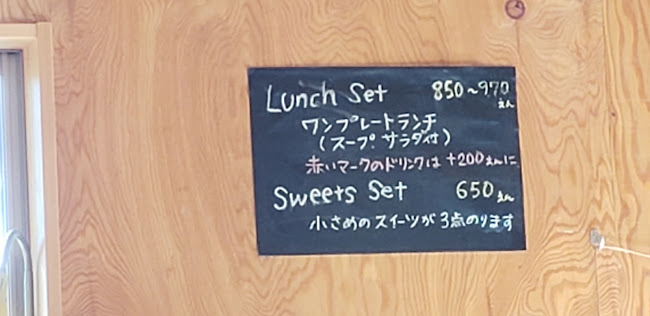 Lunch Set 850~970えん
ワンプレートランチ
(スープ.サラダ付)
赤いマークのドリンクは +200えんに
Sweets Set 650えん
小さめのスイーツが3点のります